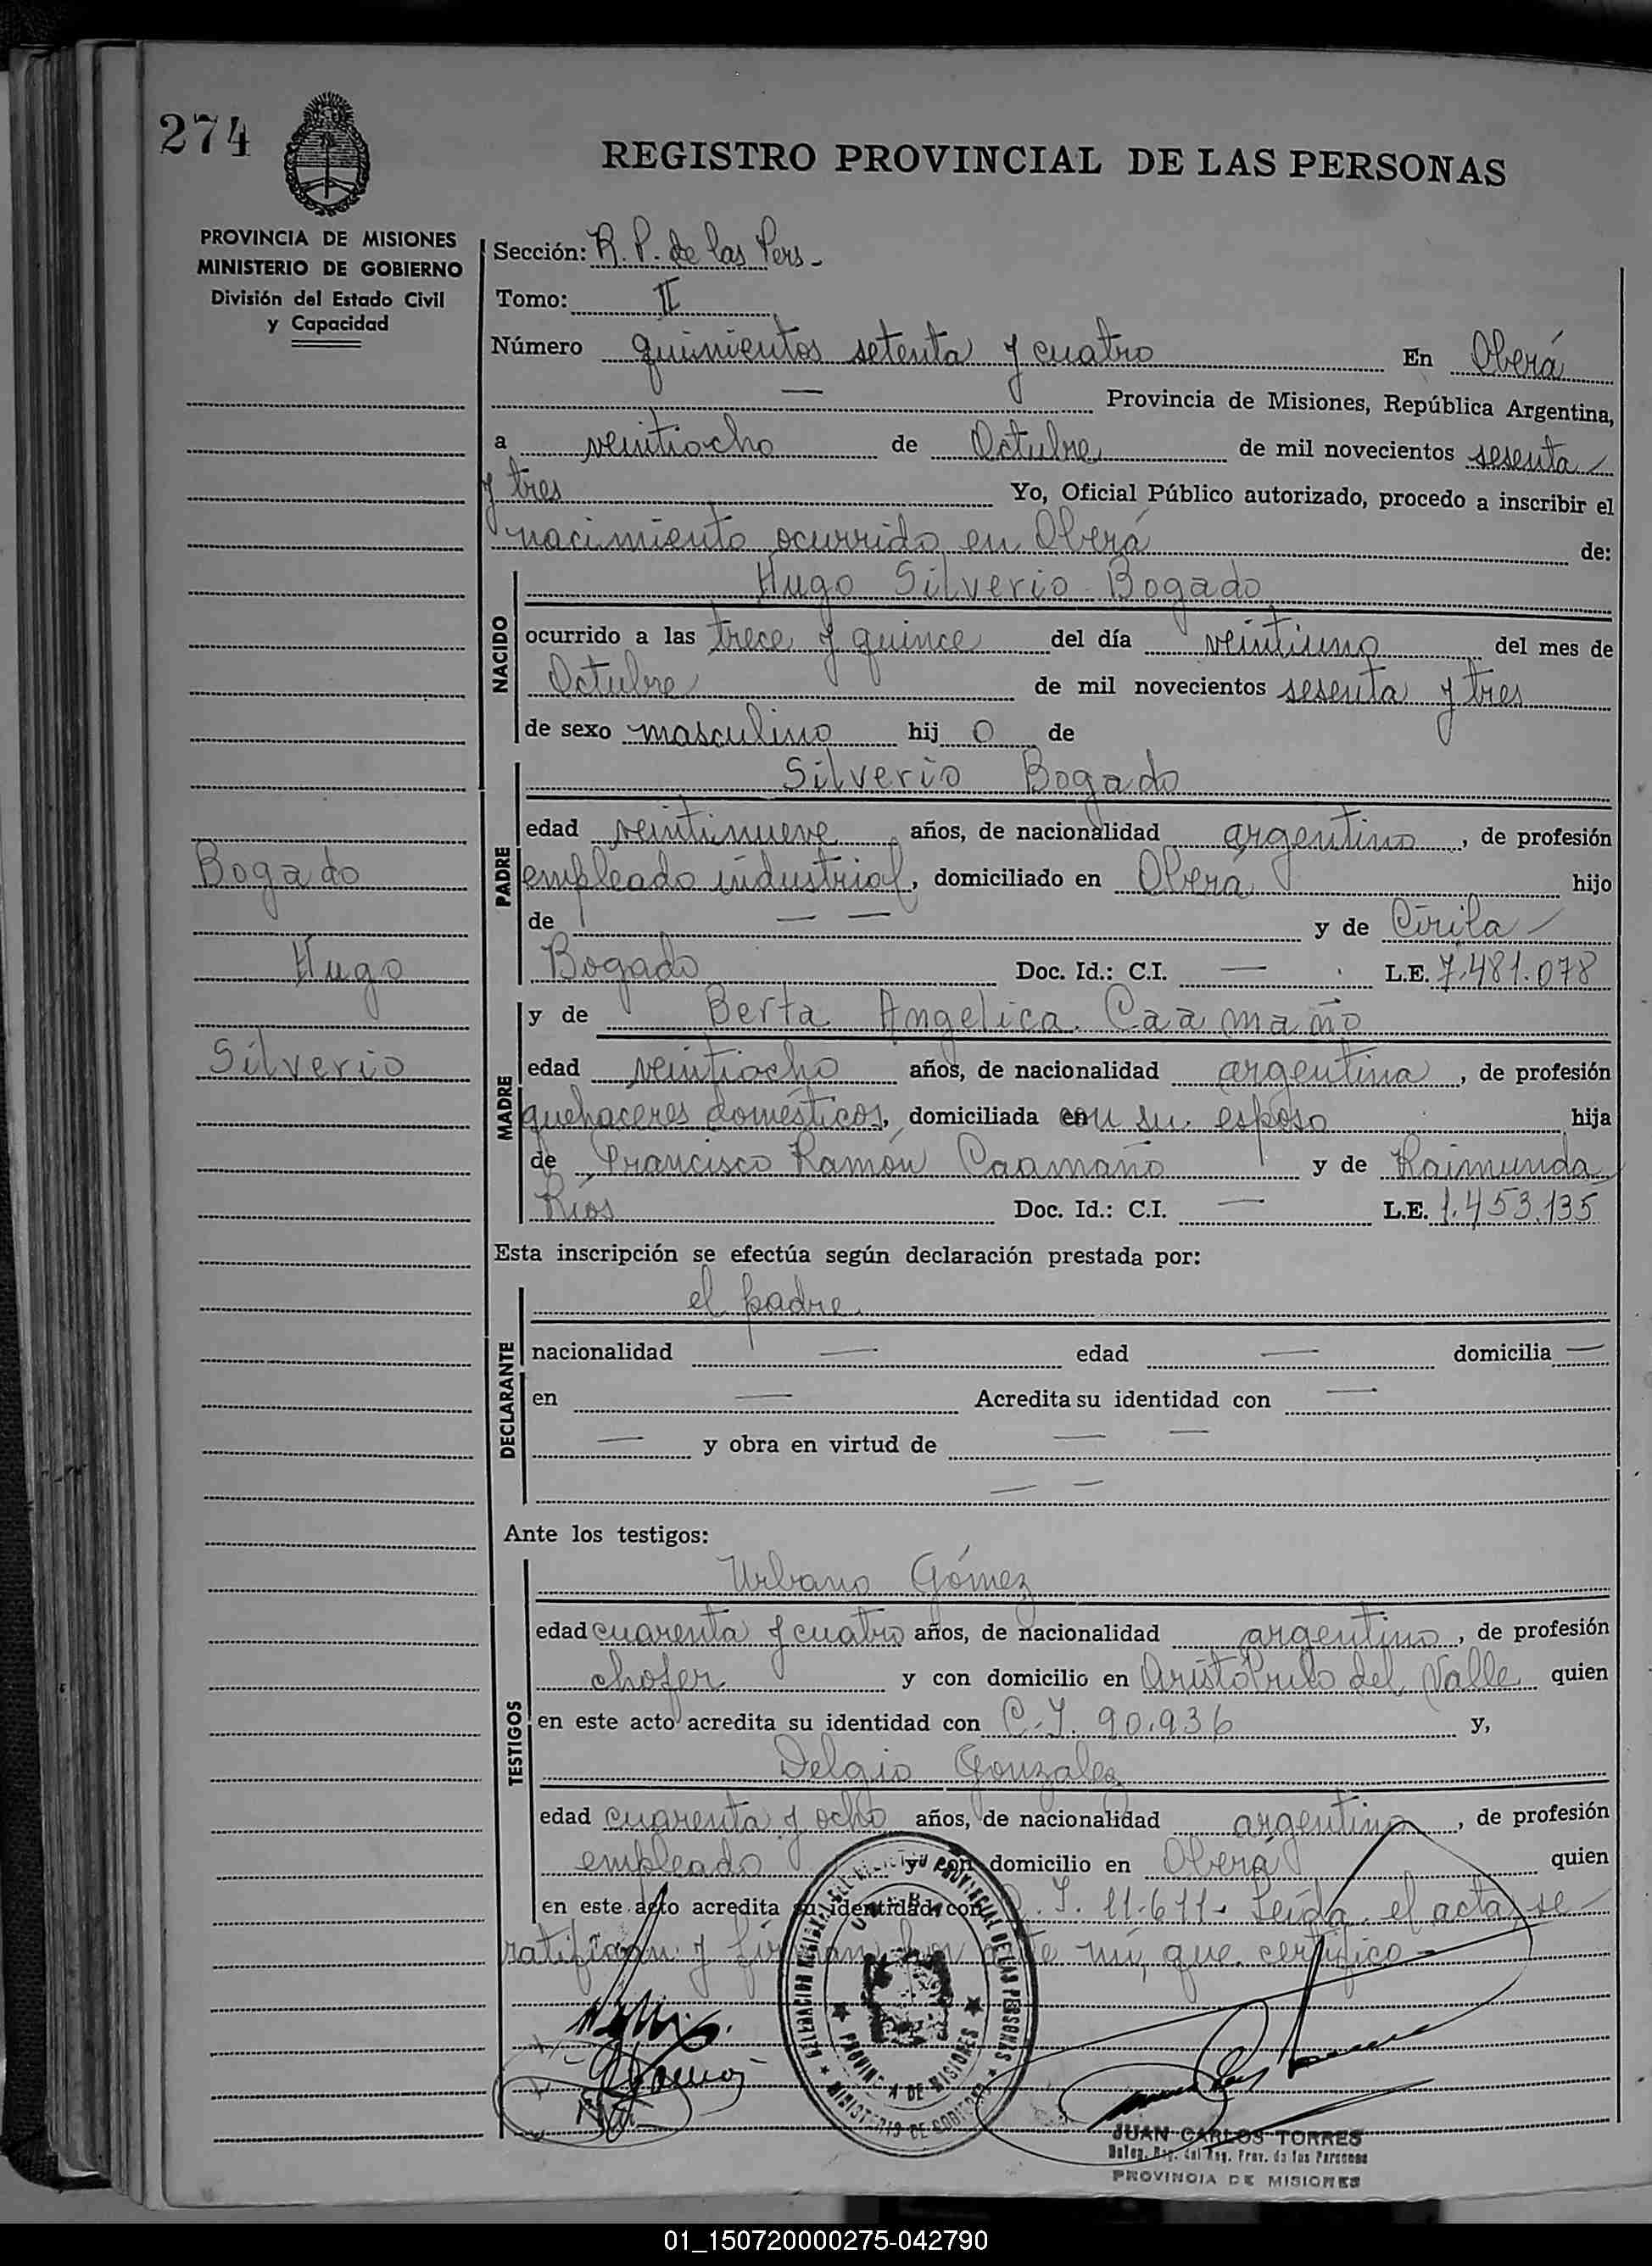 274
REGISTRO PROVINCIAL DE LAS PERSONAS
PROVINCIA DE MISIONES
MINISTERIO DE GOBIERNO
División del Estado Civil
y Capacidad
Sección: R. P. de las Pers -
Tomo: II
Número quinientos setenta y cuatro En Oberá
— Provincia de Misiones, República Argentina,
a veintiocho de Octubre de mil novecientos sesenta
y tres Yo, Oficial Público autorizado, procedo a inscribir el
nacimiento ocurrido en Oberá de:
Hugo Silverio Bogado
NACIDO
ocurrido a las trece y quince del día veintiuno del mes de
Octubre de mil novecientos sesenta y tres
de sexo masculino hij o de
Silverio Bogado
PADRE
edad veintinueve años, de nacionalidad argentino, de profesión
empleado industrial, domiciliado en Oberá hijo
de — — y de Cirila
Bogado Doc. Id.: C.I. — L.E. 7.481.078
y de Berta Angelica Caamaño
MADRE
edad veintiocho años, de nacionalidad argentina, de profesión
quehaceres domésticos, domiciliada con su esposo hija
de Francisco Ramón Caamaño y de Raimunda
Ríos Doc. Id.: C.I. — L.E. 1.453.135
Bogado
Hugo
Silverio
Esta inscripción se efectúa según declaración prestada por:
el padre
DECLARANTE
nacionalidad — edad — domicilia —
en — Acredita su identidad con —
— y obra en virtud de — —
— —
Ante los testigos:
Urbano Gómez
TESTIGOS
edad cuarenta y cuatro años, de nacionalidad argentino, de profesión
chofer y con domicilio en Aristóbulo del Valle quien
en este acto acredita su identidad con C.I. 90.936 y,
Delgio Gonzalez
edad cuarenta y ocho años, de nacionalidad argentino, de profesión
empleado y con domicilio en Oberá quien
en este acto acredita su identidad con C.I. 11.611- Leída el acta se
ratifican y firman por ante mí, que certifico -
PROVINCIAL DE LAS PERSONAS
PROVINCIA DE MISIONES
MINISTERIO DE GOBIERNO
JUAN CARLOS TORRES
PROVINCIA DE MISIONES
01_150720000275-042790